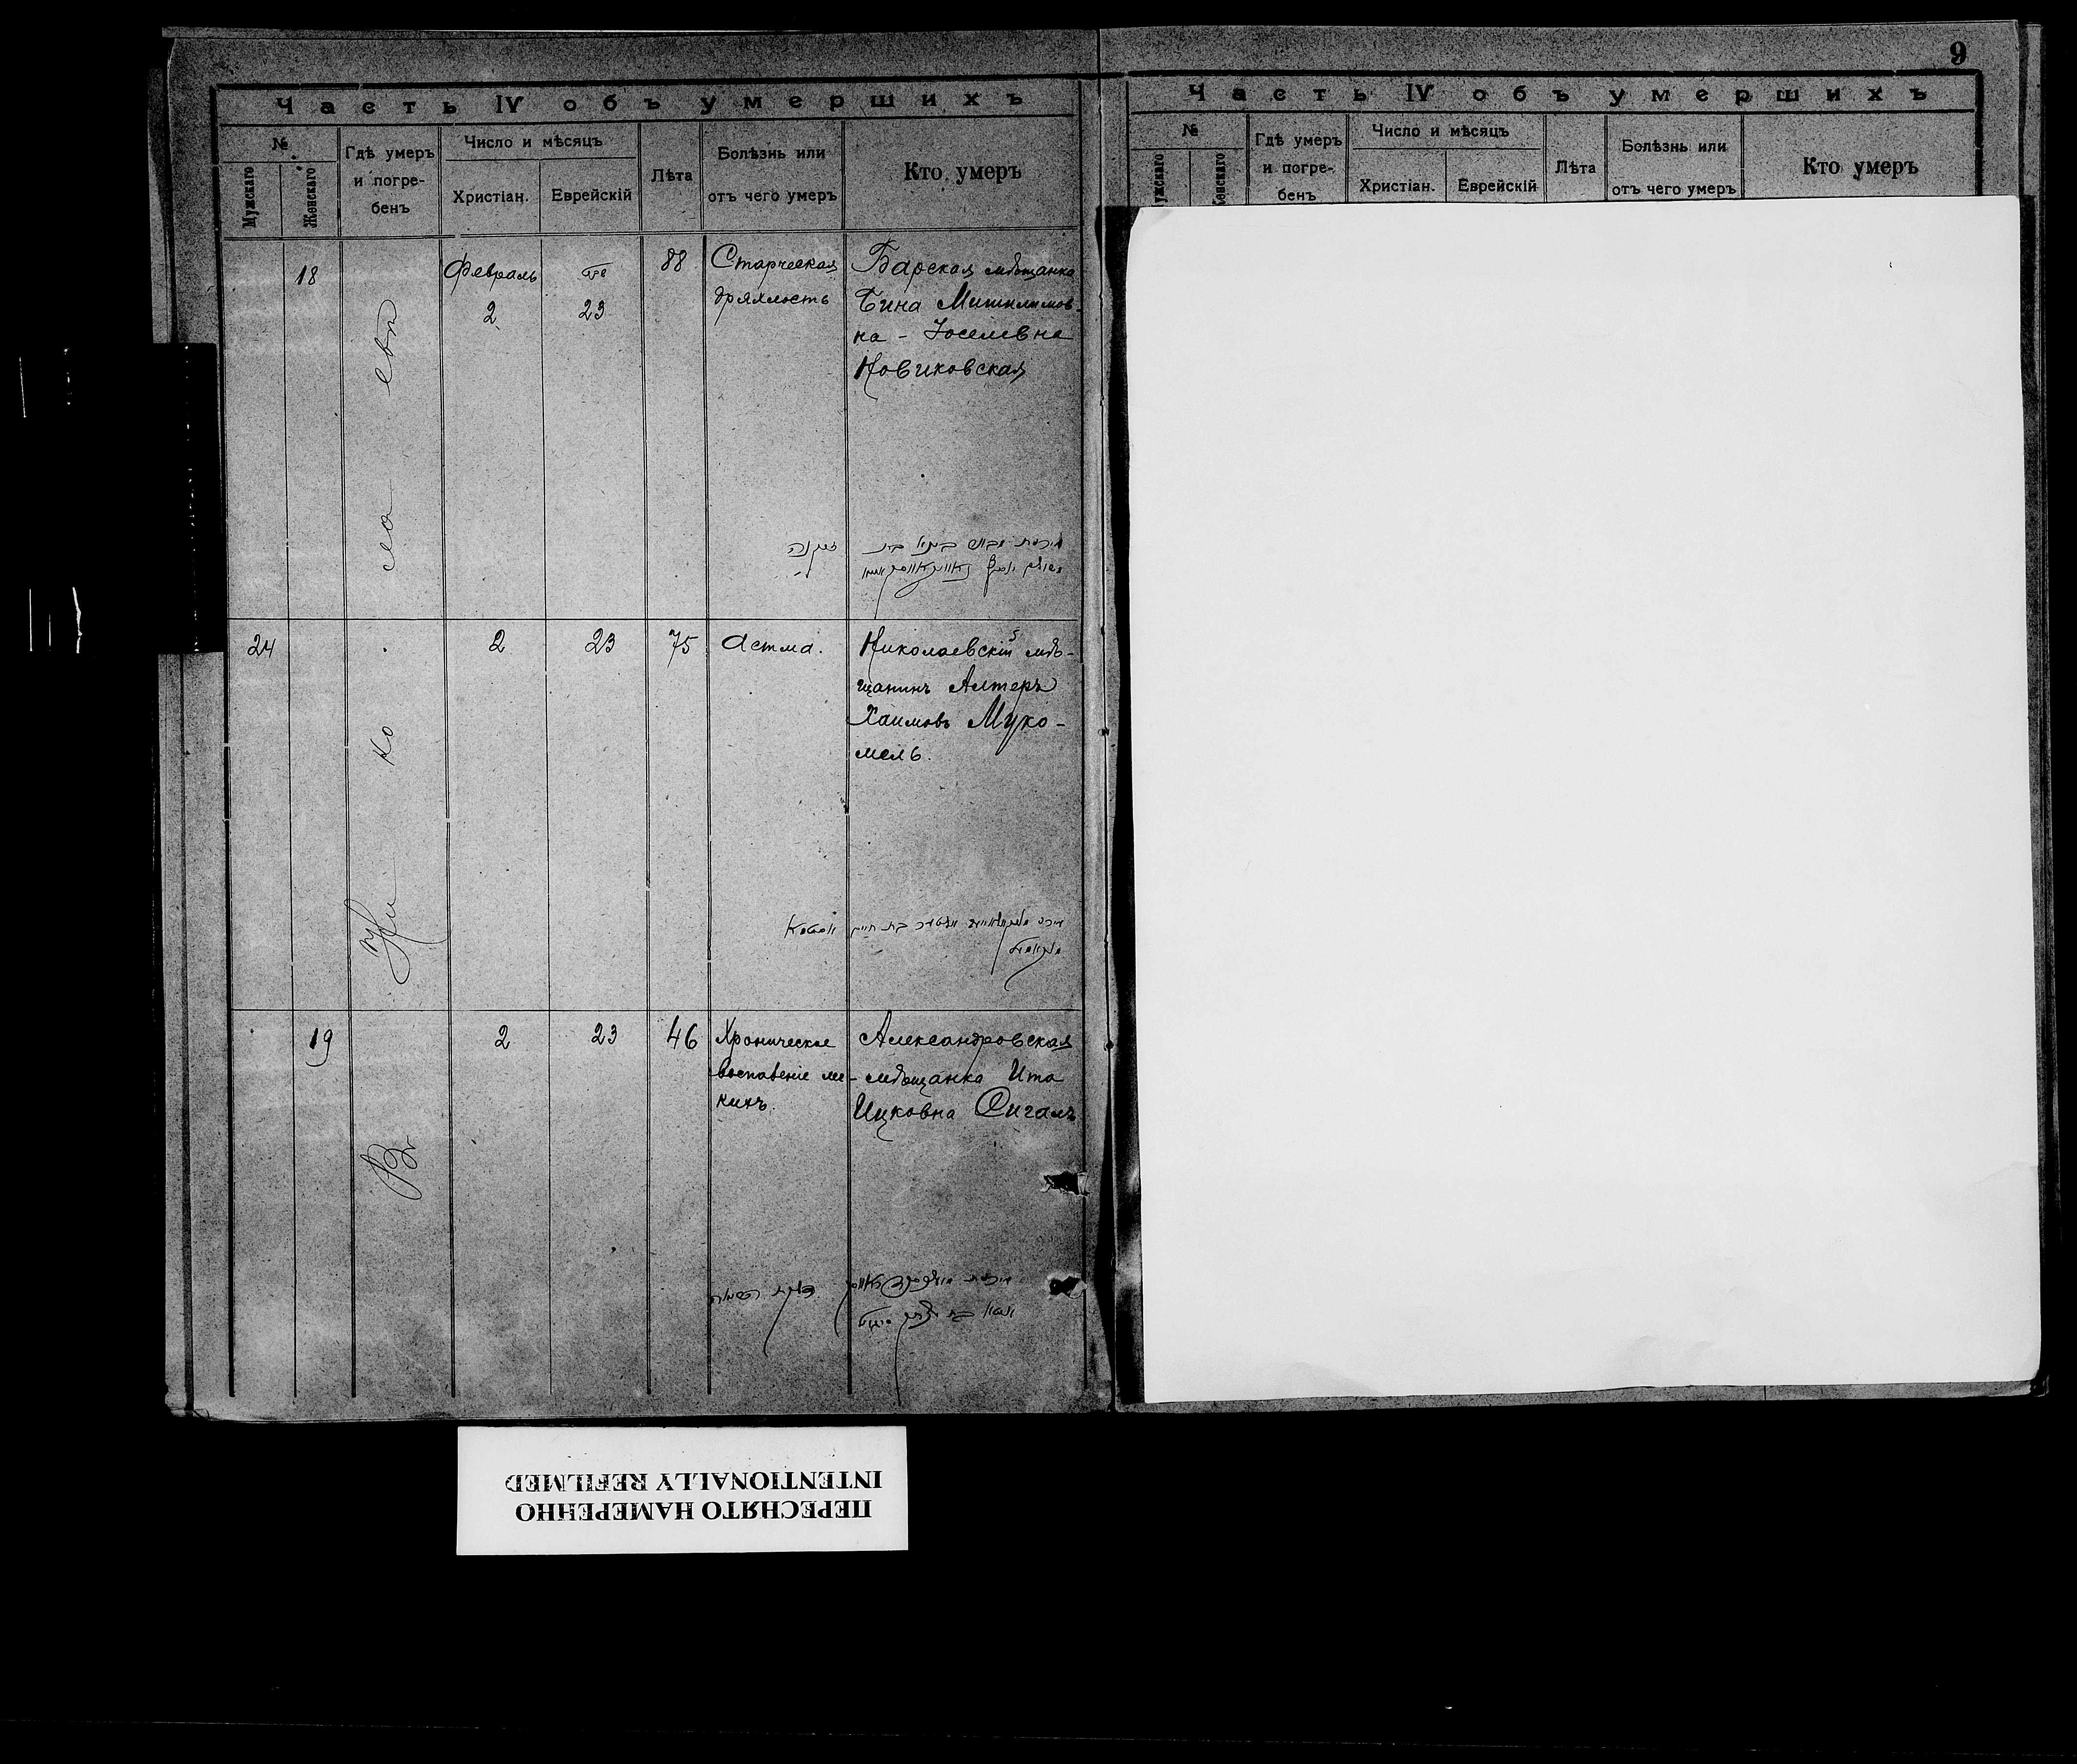 9
Часть IV объ умершихъ
№
Мужскаго
Женскаго
Гдѣ умеръ
и погре-
бенъ
Число и мѣсяцъ
Христіан.
Еврейскій
Лѣта
Болѣзнь или
отъ чего умеръ
Кто умеръ
18
Февраль
2
23
88
Старческая
дряхлость
Барская мѣщанка
Бина
на - Іоселевна
Новиковская
זקנה
24
2
23
75
Астма.
Николаевскій мѣ-
щанинъ Алтеръ
Хаимовъ Муко-
мель.
אסטמא
19
2
23
46
Хроническое
ми-
нихъ.
Александровская
мѣщанка Ита
Ицковна Сигалъ
Въ Николаевѣ
Часть IV объ умершихъ
№
Гдѣ умеръ
и погре-
бенъ
Число и мѣсяцъ
Христіан.
Еврейскій
Лѣта
Болѣзнь или
отъ чего умеръ
Кто умеръ
ПЕРЕСНЯТО НАМЕРЕННО
INTENTIONALLY REFILMED